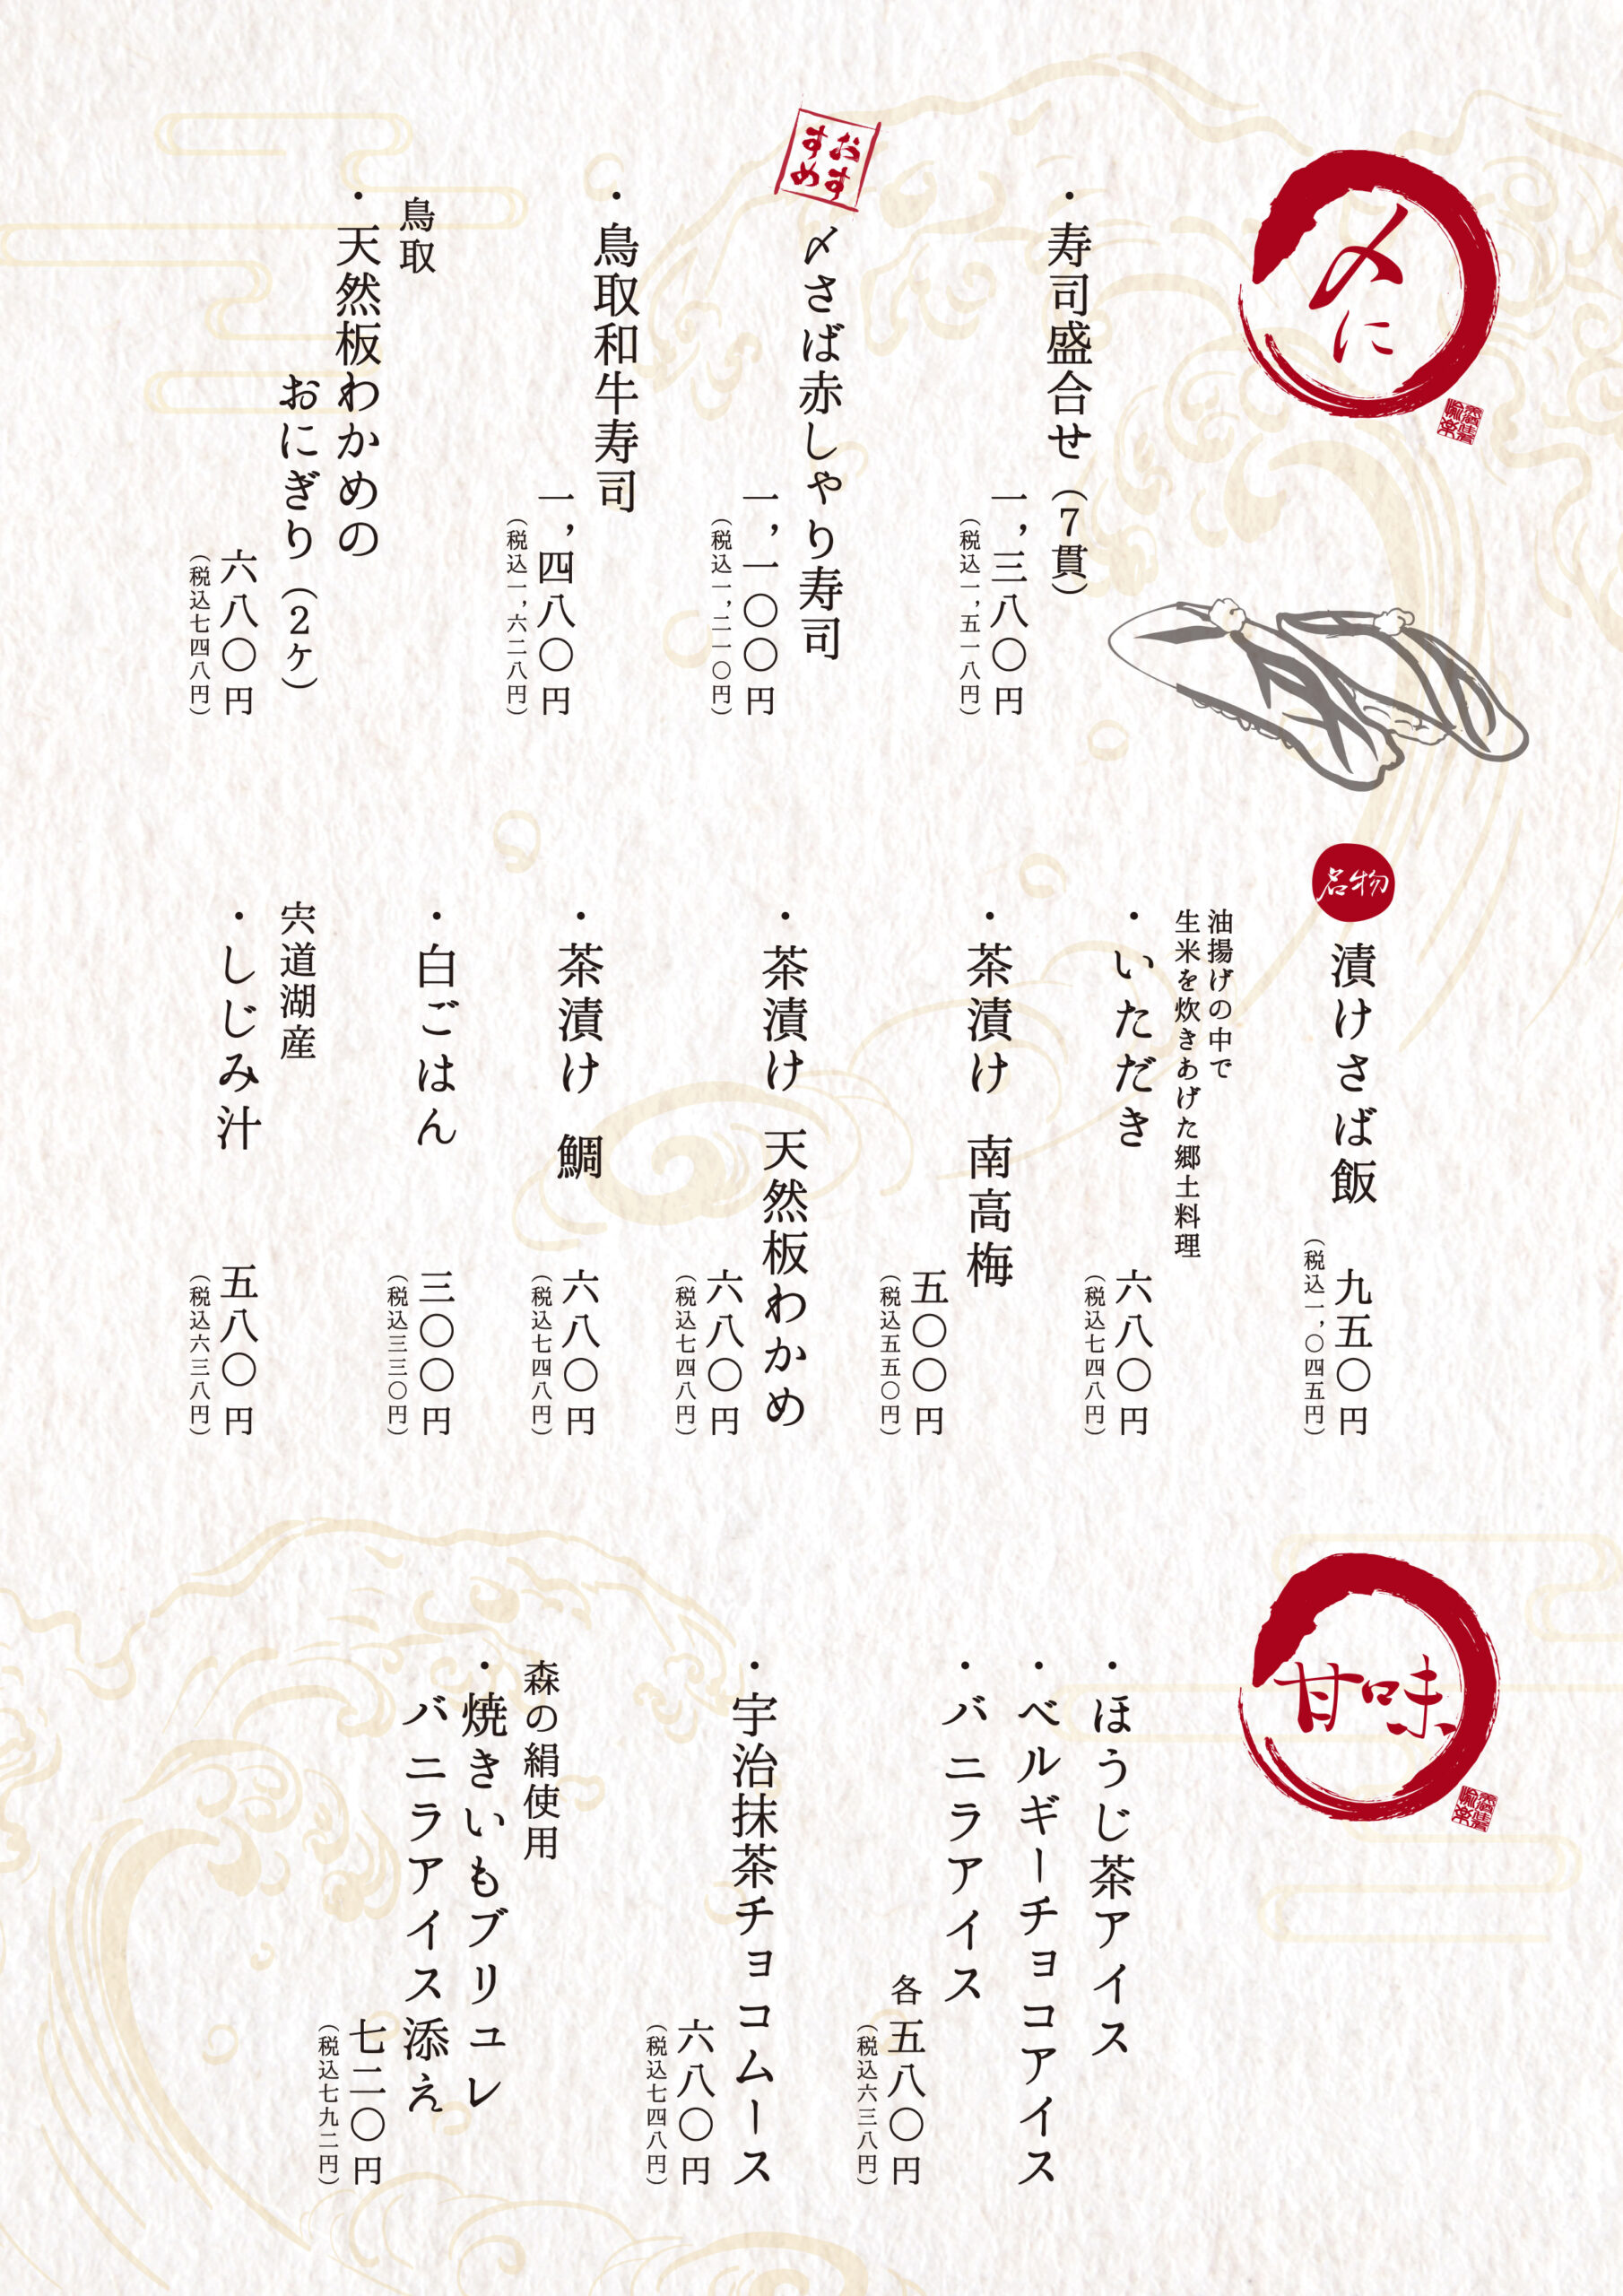 〆に
・寿司盛合せ（7貫）
一,三八〇円
（税込一,五一八円）
おすすめ
〆さば赤しゃり寿司
一,一〇〇円
（税込一,二一〇円）
・鳥取和牛寿司
一,四八〇円
（税込一,六二八円）
鳥取
・天然板わかめの
おにぎり（2ケ）
六八〇円
（税込七四八円）
名物
漬けさば飯
九五〇円
（税込一,〇四五円）
油揚げの中で
生米を炊きあげた郷土料理
・いただき
六八〇円
（税込七四八円）
・茶漬け 南高梅
五〇〇円
（税込五五〇円）
・茶漬け 天然板わかめ
六八〇円
（税込七四八円）
・茶漬け 鯛
六八〇円
（税込七四八円）
・白ごはん
三〇〇円
（税込三三〇円）
宍道湖産
・しじみ汁
五八〇円
（税込六三八円）
甘味
・ほうじ茶アイス
・ベルギーチョコアイス
・バニラアイス
各五八〇円
（税込六三八円）
・宇治抹茶チョコムース
六八〇円
（税込七四八円）
森の絹使用
・焼きいもブリュレ
バニラアイス添え
七二〇円
（税込七九二円）